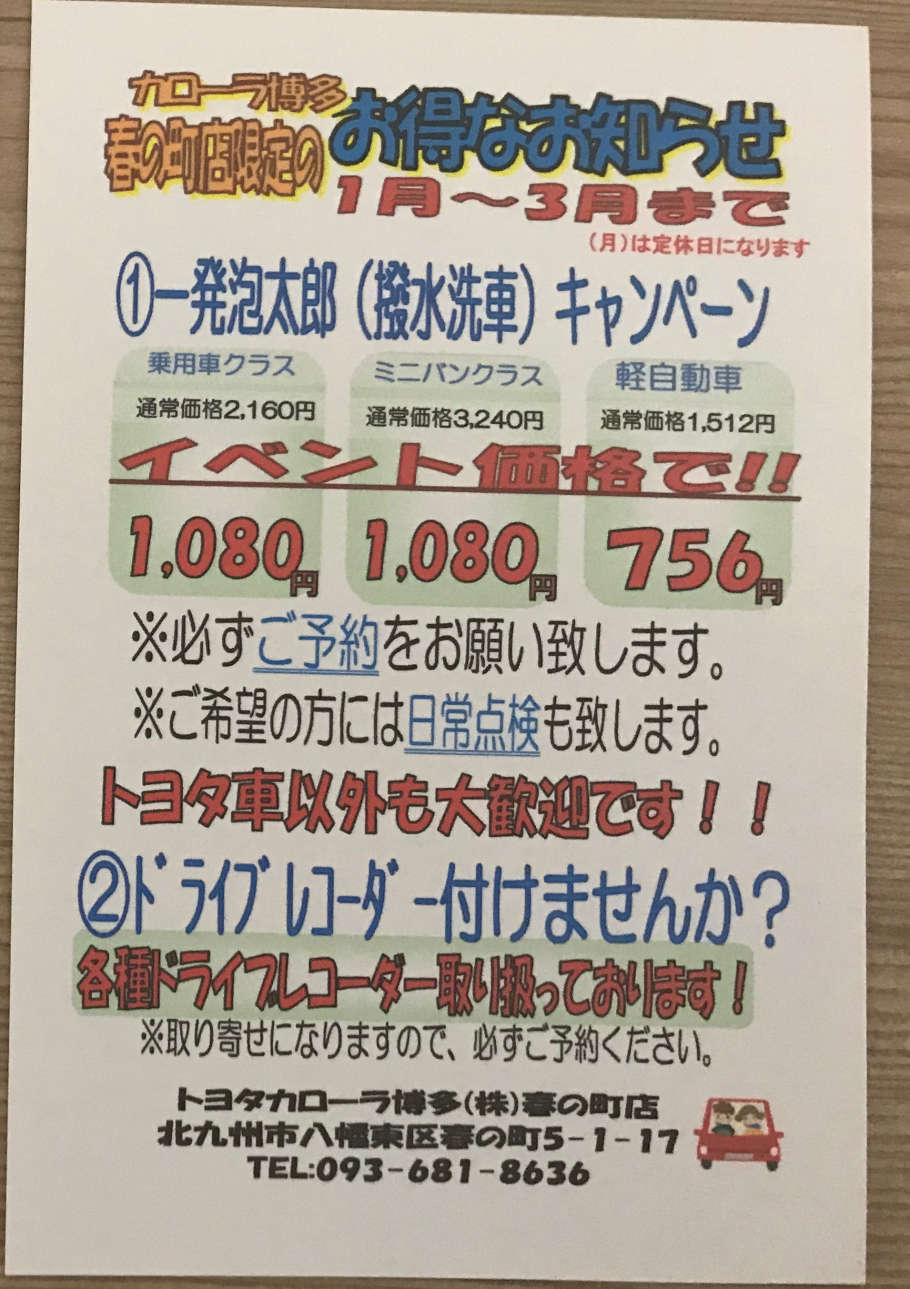 カローラ博多
春の町店限定の
お得なお知らせ
1月～3月まで
(月)は定休日になります
①一発泡太郎(撥水洗車)キャンペーン
乗用車クラス ミニバンクラス 軽自動車
通常価格2,160円 通常価格3,240円 通常価格1,512円
イベント価格で!!
1,080円 1,080円 756円
※必ずご予約をお願い致します。
※ご希望の方には日常点検も致します。
トヨタ車以外も大歓迎です！！
②ドライブレコーダー付けませんか？
各種ドライブレコーダー取り扱っております！
※取り寄せになりますので、必ずご予約ください。
トヨタカローラ博多(株)春の町店
北九州市八幡東区春の町5-1-17
TEL:093-681-8636